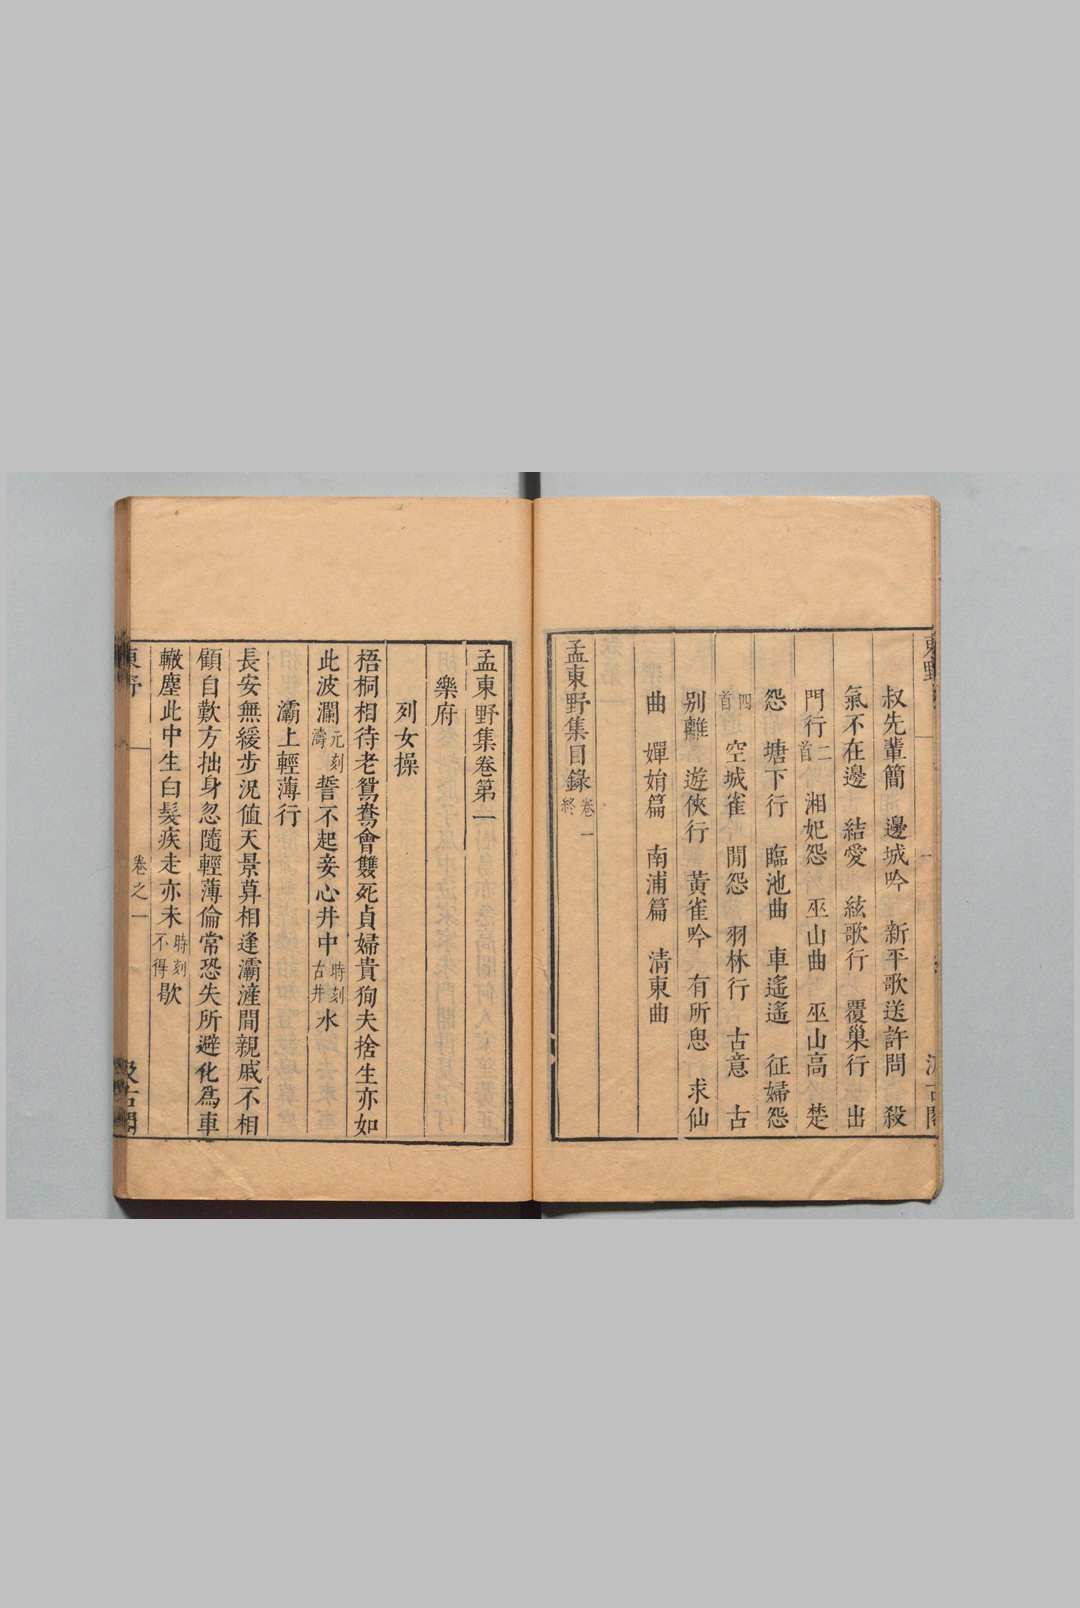 叔先輩簡　邊城吟　新平歌送許問　殺
氣不在邊　結愛　絃歌行　覆巢行　出
門行二首　湘妃怨　巫山曲　巫山高　楚
怨　塘下行　臨池曲　車遙遙　征婦怨
四首　空城雀　閒怨　羽林行　古意　古
别離　遊俠行　黃雀吟　有所思　求仙
曲　嬋娟篇　南浦篇　淸東曲
孟東野集目錄卷一終
孟東野集卷第一
樂府
列女操
梧桐相待老鴛鴦會雙死貞婦貴徇夫捨生亦如
此波瀾元刻濤誓不起妾心井中時刻古井水
灞上輕薄行
長安無緩步況値天景暮相逢灞滻間親戚不相
顧自歎方拙身忽隨輕薄倫常恐失所避化爲車
轍塵此中生白髮疾走亦未時刻不得歇
東野
卷之一
汲古閣